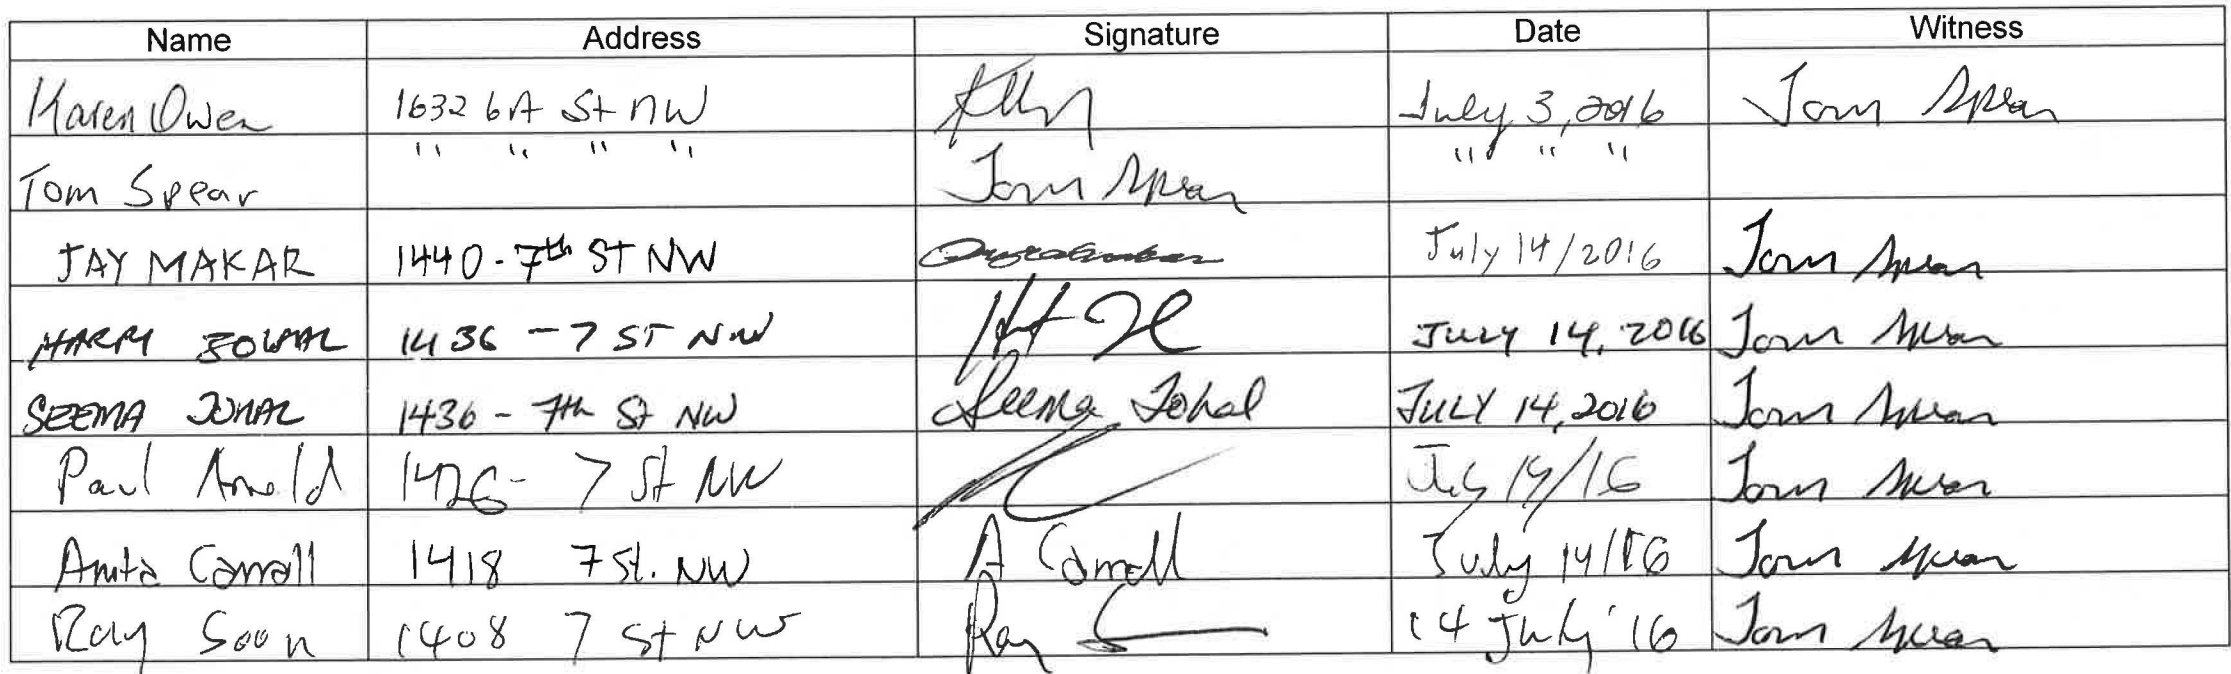 Name Address Signature Date Witness
Karen Owen 1632 6A St NW July 3, 2016 Tom Spear
Tom Spear " " " " Tom Spear " " "
JAY MAKAR 1440 - 7th ST NW July 14/2016 Tom Spear
1436 - 7 ST NW JULY 14, 2016 Tom Spear
SEEMA JOHAL 1436 - 7th St NW Seema Johal JULY 14, 2016 Tom Spear
Paul Arnold 1426 - 7 St NW July 14/16 Tom Spear
Anita Carroll 1418 7 St. NW A Carroll July 14/16 Tom Spear
Ray Soon 1408 7 St NW Ray 14 July '16 Tom Spear